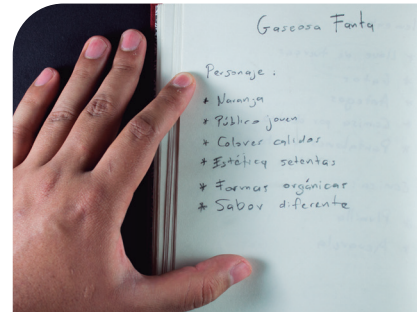 Gaseosa Fanta
Personaje :
* Naranja
* Público joven
* Colores calidos
* Estética setentas
* Formas orgánicas
* Sabor diferente